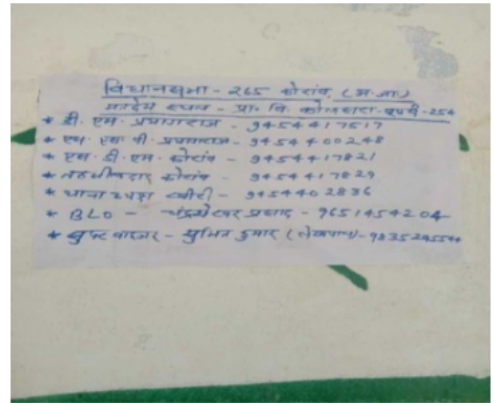 विधानसभा - 265 कोरांव (अ.जा.)
मतदेय स्थल - प्रा. वि. कोलसरा - 254
* डी. एम. प्रयागराज - 9454417517
* एस. एस. पी. प्रयागराज - 9454400248
* एस. डी. एम. कोरांव - 9454417821
* तहसीलदार कोरांव - 9454417829
* थानाध्यक्ष - 9454402836
* BLO - प्रसाद - 9651454204
* सुपरवाइजर - सुमित कुमार (लेखपाल) -